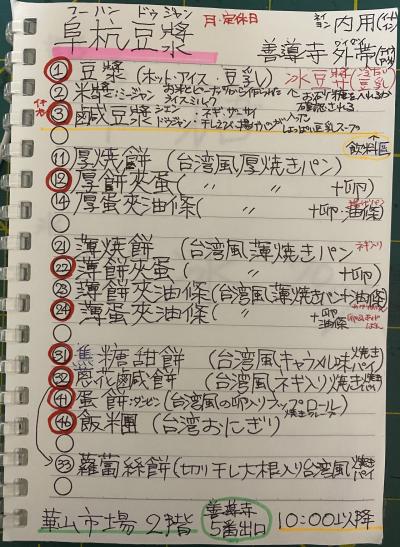 フーハン ドゥジャン 月・定休日 イートイン
阜杭豆漿 内用
善導寺 外帯
① 豆漿 (ホット・アイス・豆乳) 冰豆漿
② 米漿:ミージャン お米とピーナッツ ライスミルク
③ 鹹豆漿 シェンドゥジャン ネギ、ザーサイ 揚げパンが入った しょっぱい豆乳スープ
飲料區
⑪ 厚燒餅 (台湾風厚焼きパン)
⑫ 厚餅夾蛋( 〃 〃 +卵)
⑭ 厚蛋夾油條( 〃 +卵・油條)
㉑ 薄燒餅 (台湾風薄焼きパン ネギ入り
㉒ 薄餅夾蛋( 〃 +卵)
㉓ 薄餅夾油條(台湾風薄焼きパン+油條)
㉔ 薄蛋夾油條( 〃 +卵 油條)
㉛ 焦糖甜餅 (台湾風キャラメル味焼きパイ)
㉜ 葱花鹹餅 (台湾風ネギ入り焼きパイ)
㊶ 蛋餅:ダンビン(台湾風の卵入りラップロール) 焼きクレープ
㊻ 飯米團 (台湾おにぎり)
㉝ 蘿蔔絲餅(切り干し大根入り台湾風焼きパイ
華山市場 2階 善導寺 5番出口 10:00以降